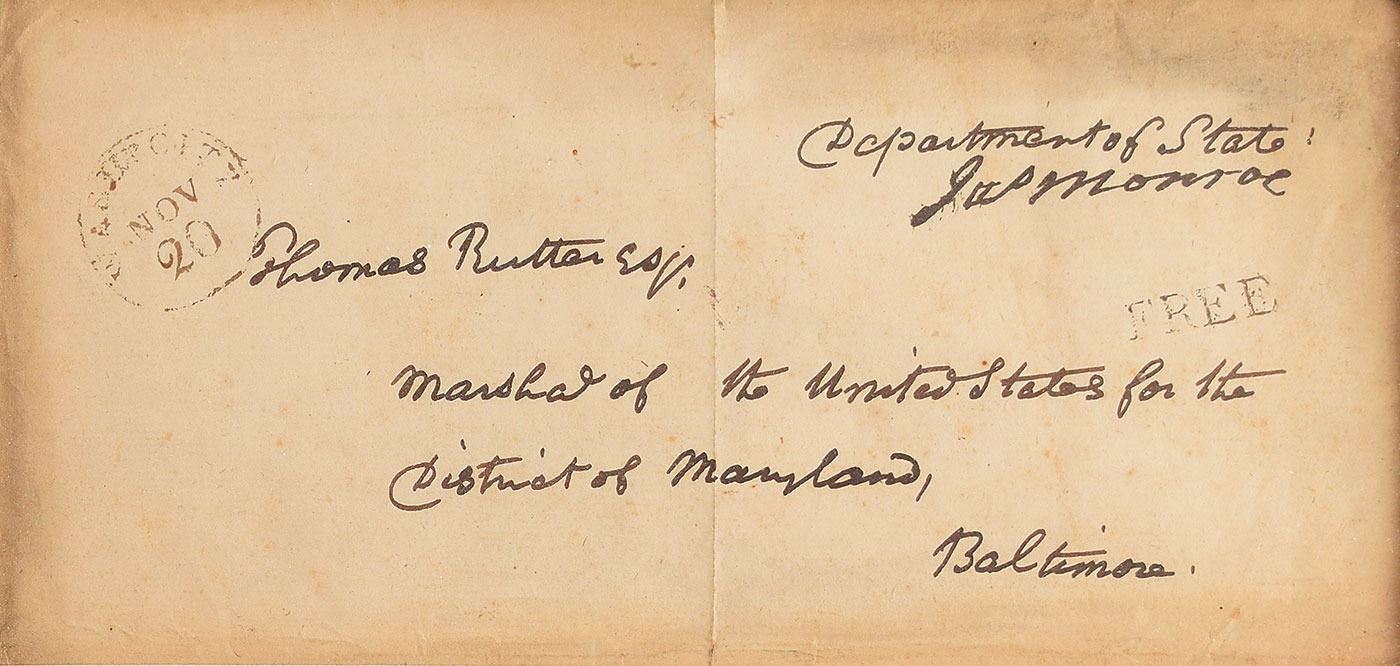 Department of State:
Jas Monroe
NOV
20
Thomas Rutter Esq.
FREE
Marshal of the United States for the
District of Maryland,
Baltimore.